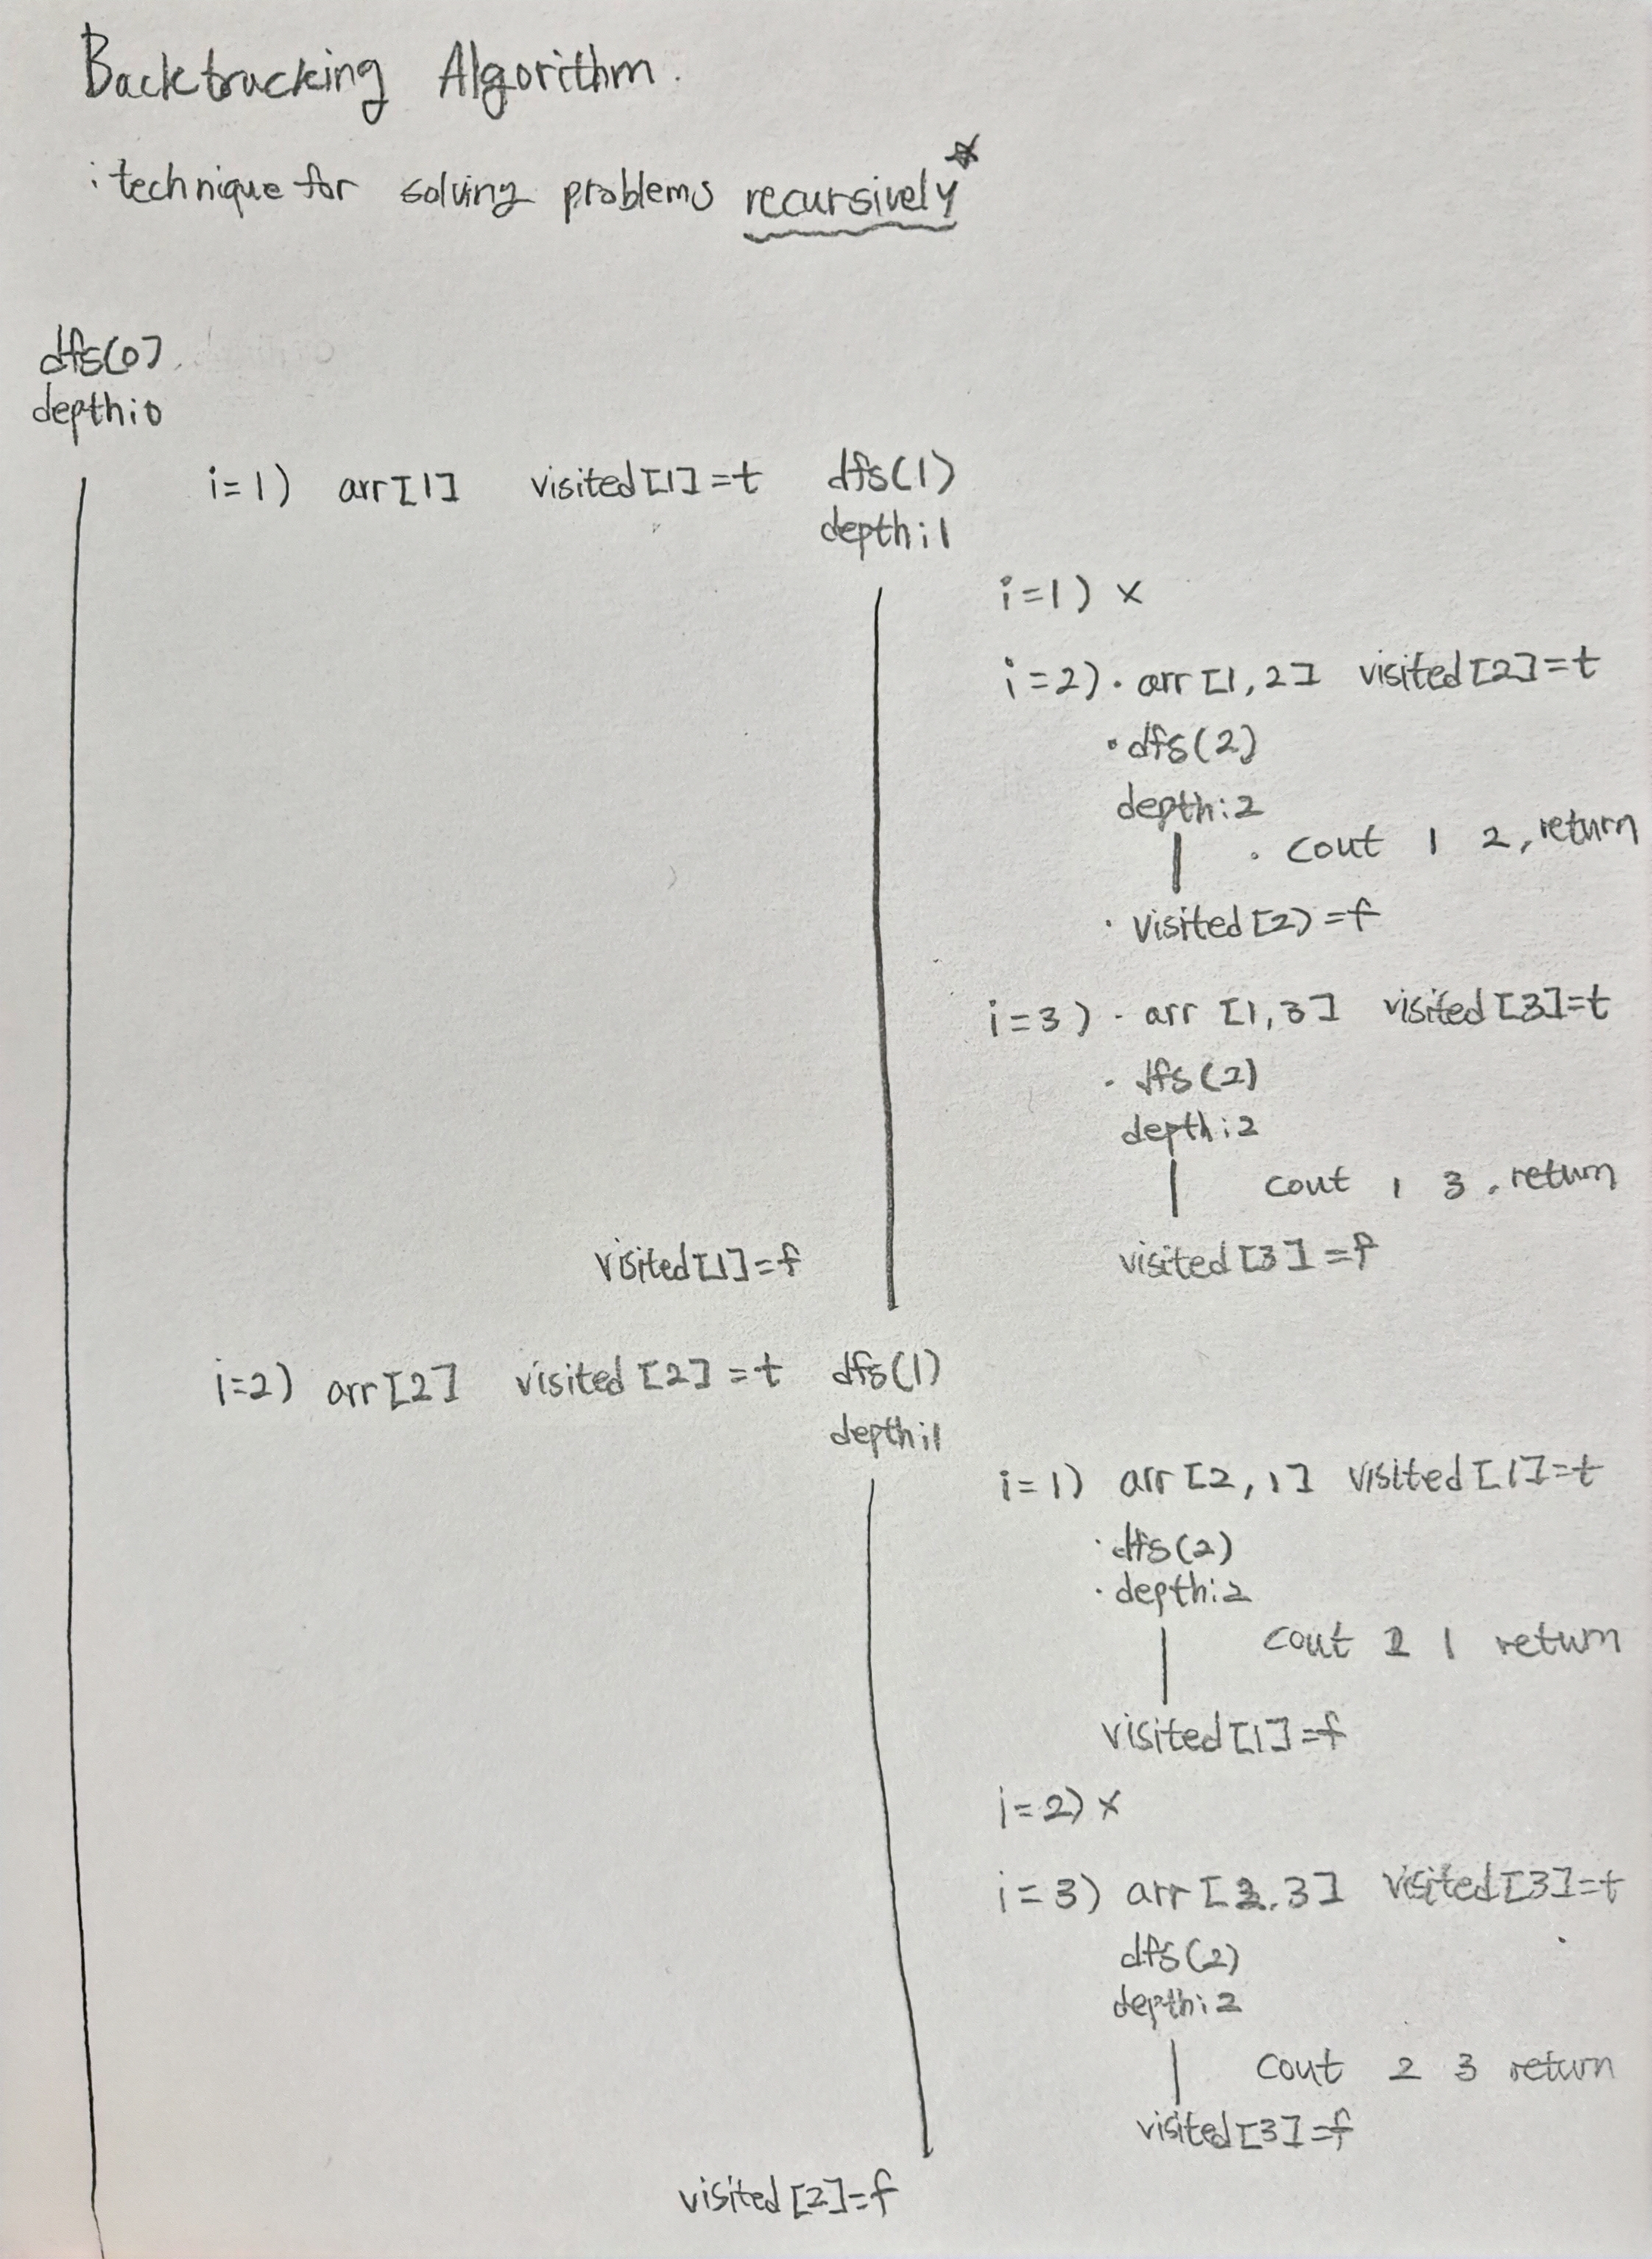 Backtracking Algorithm.
: technique for solving problems recursively
dfs(0)
depth:0
i=1) arr[1] visited[1]=t dfs(1)
depth:1
i=1) x
i=2) · arr[1,2] visited[2]=t
· dfs(2)
depth:2
· cout 1 2, return
· visited[2)=f
i=3) · arr [1,3] visited[3]=t
· dfs(2)
depth:2
cout 1 3, return
visited[3]=f
visited[1]=f
i=2) arr[2] visited[2]=t dfs(1)
depth:1
i=1) arr[2,1] visited[1]=t
· dfs(2)
· depth:2
cout 2 1 return
visited[1]=f
i=2) x
i=3) arr[2,3] visited[3]=t
dfs(2)
depth:2
cout 2 3 return
visited[3]=f
visited[2]=f